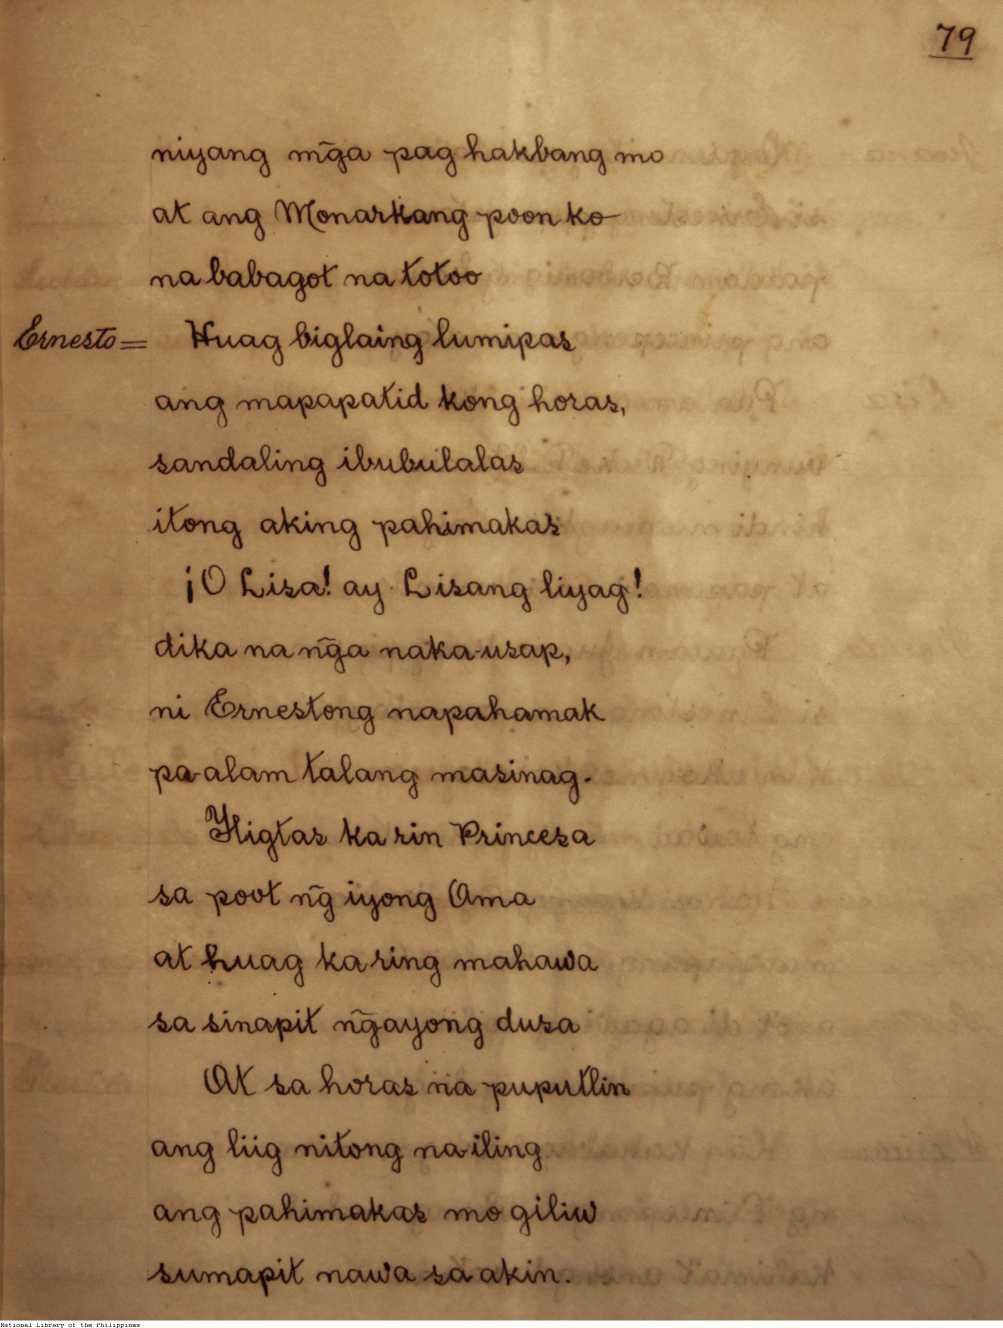 79
niyang m̃ga pag hakbang mo
at ang Monarkang poon ko
na babagot na totoo
Ernesto= Huag biglaing lumipas
ang mapapatid kong horas,
sandaling ibubulalas
itong aking pahimakas
¡O Lisa! ay Lisang liyag!
dika na ñga naka-usap,
ni Ernestong napahamak
pa-alam talang masinag.
Yligtas ka rin Princesa
sa poot ñg iyong Ama
at huag ka ring mahawa
sa sinapit ñgayong dusa
At sa horas na puputlin
ang liig nitong na iling
ang pahimakas mo giliw
sumapit nawa sa akin.
National Library of the Philippines